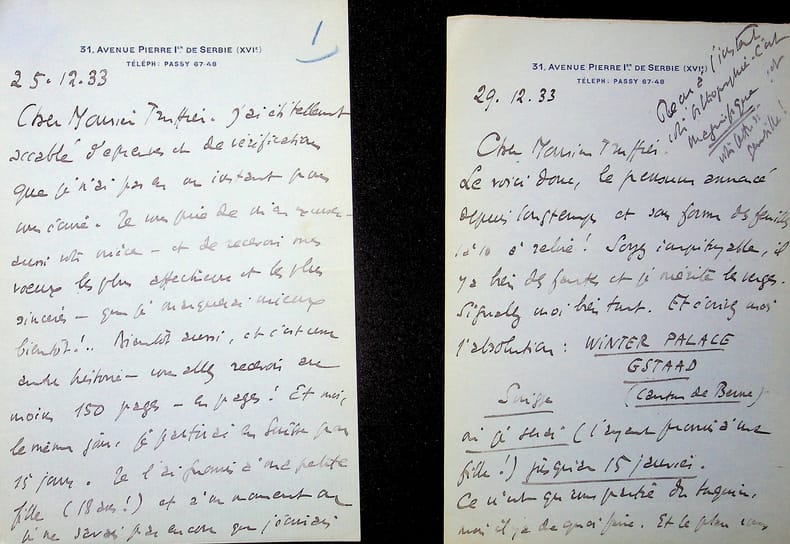 1
31, AVENUE PIERRE Iᵉʳ DE SERBIE (XVIᵉ)
TÉLÉPH: PASSY 67-48
25.12.33
Cher Monsieur Truffier. J'ai été tellement
accablé d'épreuves et de vérifications
que je n'ai pas eu un instant pour
vous écrire. Je vous prie de m'en excuser
aussi votre nièce - et de recevoir mes
voeux les plus affectueux et les plus
sincères - que je marquerai mieux
bientôt!.. Bientôt aussi, et c'est une
autre histoire - vous allez recevoir au
moins 150 pages - en pages! Et moi,
le même jour, je partirai en Suisse pour
15 jours. Je l'ai promis à ma petite
fille (18 ans!) et à un moment où
je ne savais pas encore que j'écrivais
31, AVENUE PIERRE Iᵉʳ DE SERBIE (XVIᵉ)
TÉLÉPH: PASSY 67-48
29.12.33
Reçu à l'instant
votre lithographie. C'est
magnifique
et
gentille!
Cher Monsieur Truffier.
Le voici donc, le pensum annoncé
depuis longtemps et sous forme de feuilles
1 à 10 à relire! Soyez impitoyable, il
y a bien des fautes et je mérite les verges.
Signalez moi bien tout. Et écrivez moi
l'absolution: WINTER PALACE
GSTAAD
Suisse (Canton de Berne)
où je serai (l'ayant promis à ma
fille!) jusqu'au 15 janvier.
Ce n'est qu'une partie du
mais il y a de quoi faire. Et le plan vous